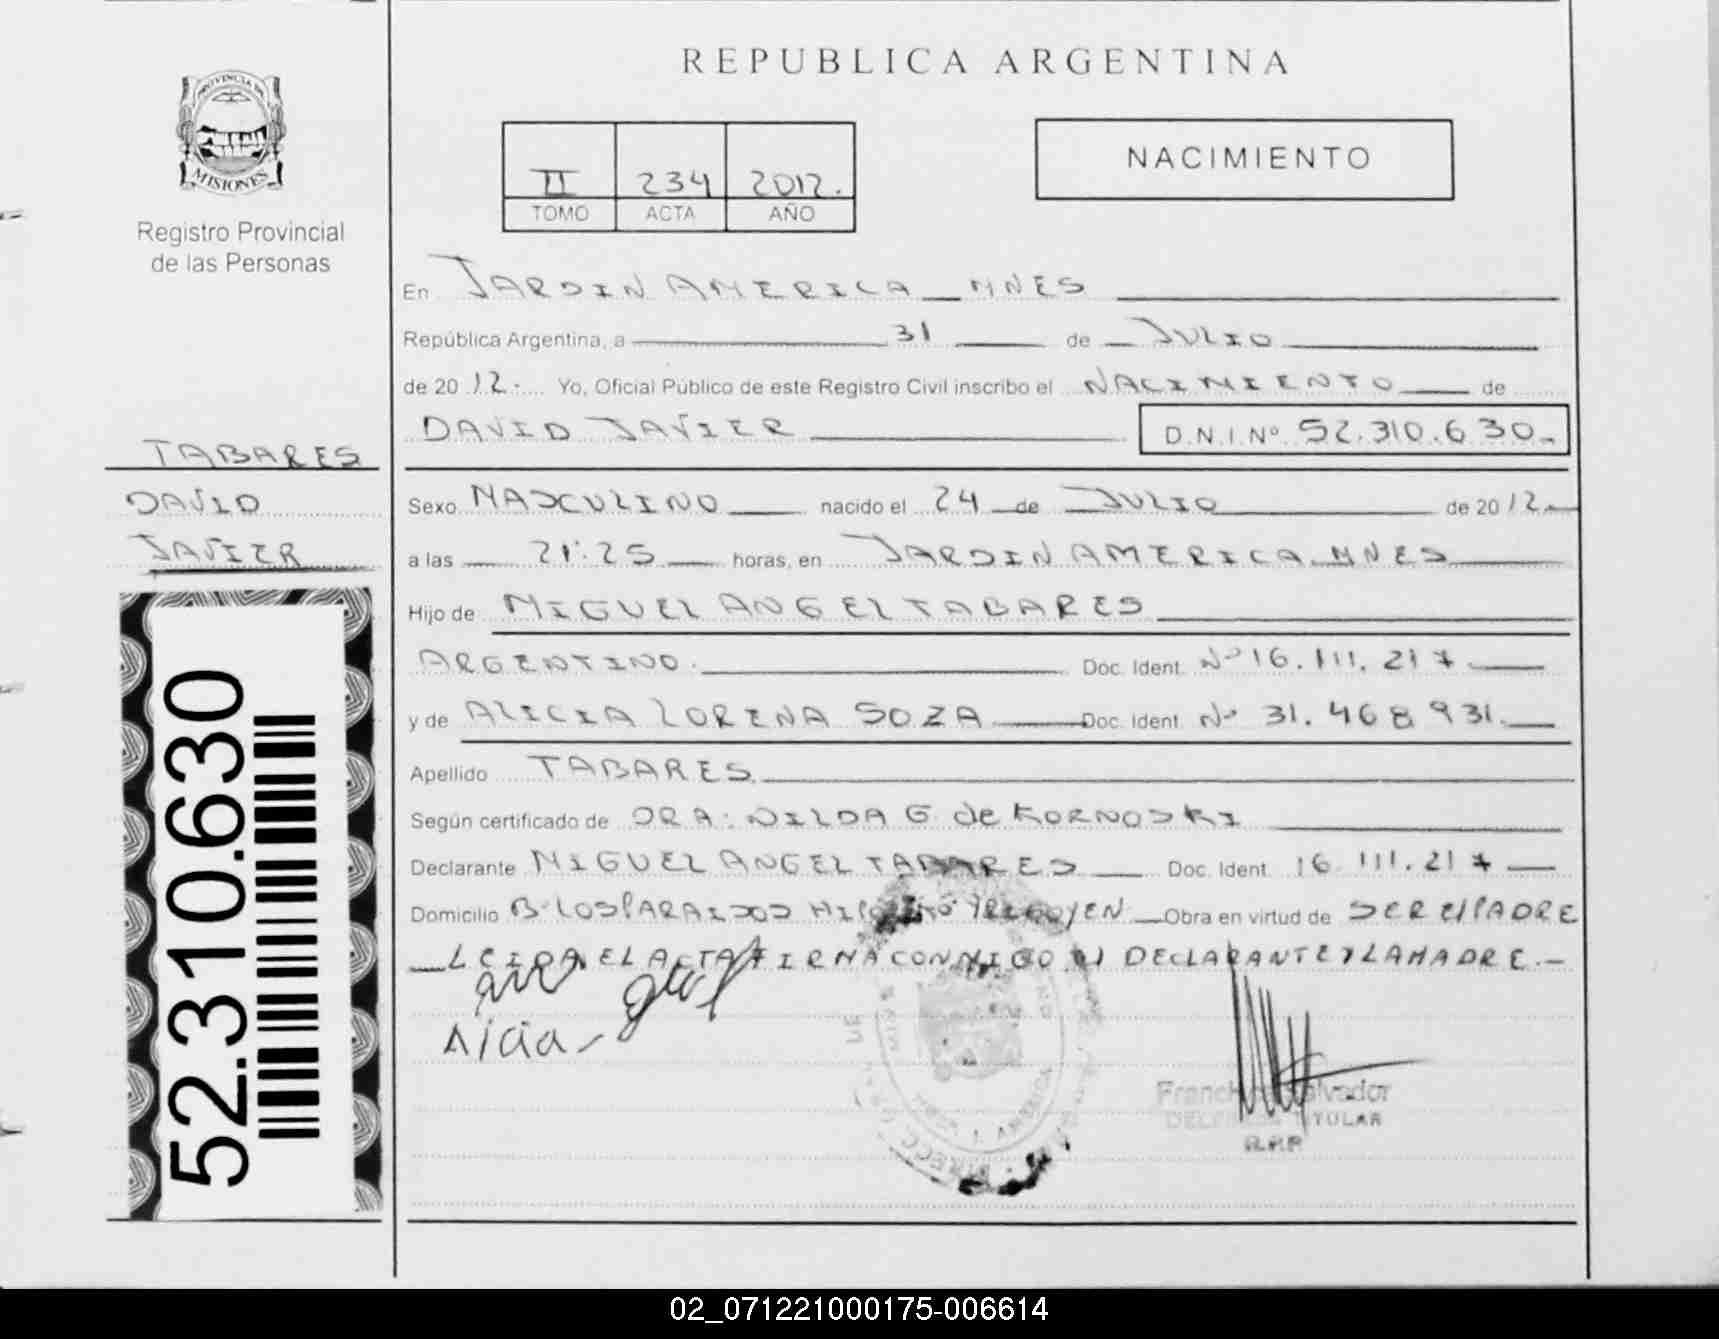 REPUBLICA ARGENTINA
PROVINCIA DE
MISIONES
Registro Provincial
de las Personas
II 234 2012.
TOMO ACTA AÑO
NACIMIENTO
En JARDIN AMERICA MNES
República Argentina, a 31 de JULIO
de 20 12. Yo, Oficial Público de este Registro Civil inscribo el NACIMIENTO de
DAVID JAVIER D.N.I.Nº 52.310.630.
TABARES
DAVID
JAVIER
Sexo MASCULINO nacido el 24 de JULIO de 20 12
a las 21:25 horas, en JARDIN AMERICA MNES
Hijo de MIGUEL ANGEL TABARES
ARGENTINO. Doc. Ident. Nº 16.111.217
y de ALICIA LORENA SOZA Doc. Ident. Nº 31.468931.
Apellido TABARES
Según certificado de DRA: NILDA G de KORNOSKI
Declarante MIGUEL ANGEL TABARES Doc. Ident. 16 111.217
Domicilio Bº LOS PARAISOS HIPOLITO YRIGOYEN Obra en virtud de SER EL PADRE
LEIDA EL ACTA FIRMA CONMIGO EL DECLARANTE Y LA MADRE.
Alicia
52.310.630
Salvador
TITULAR
R.P.P
02_071221000175-006614